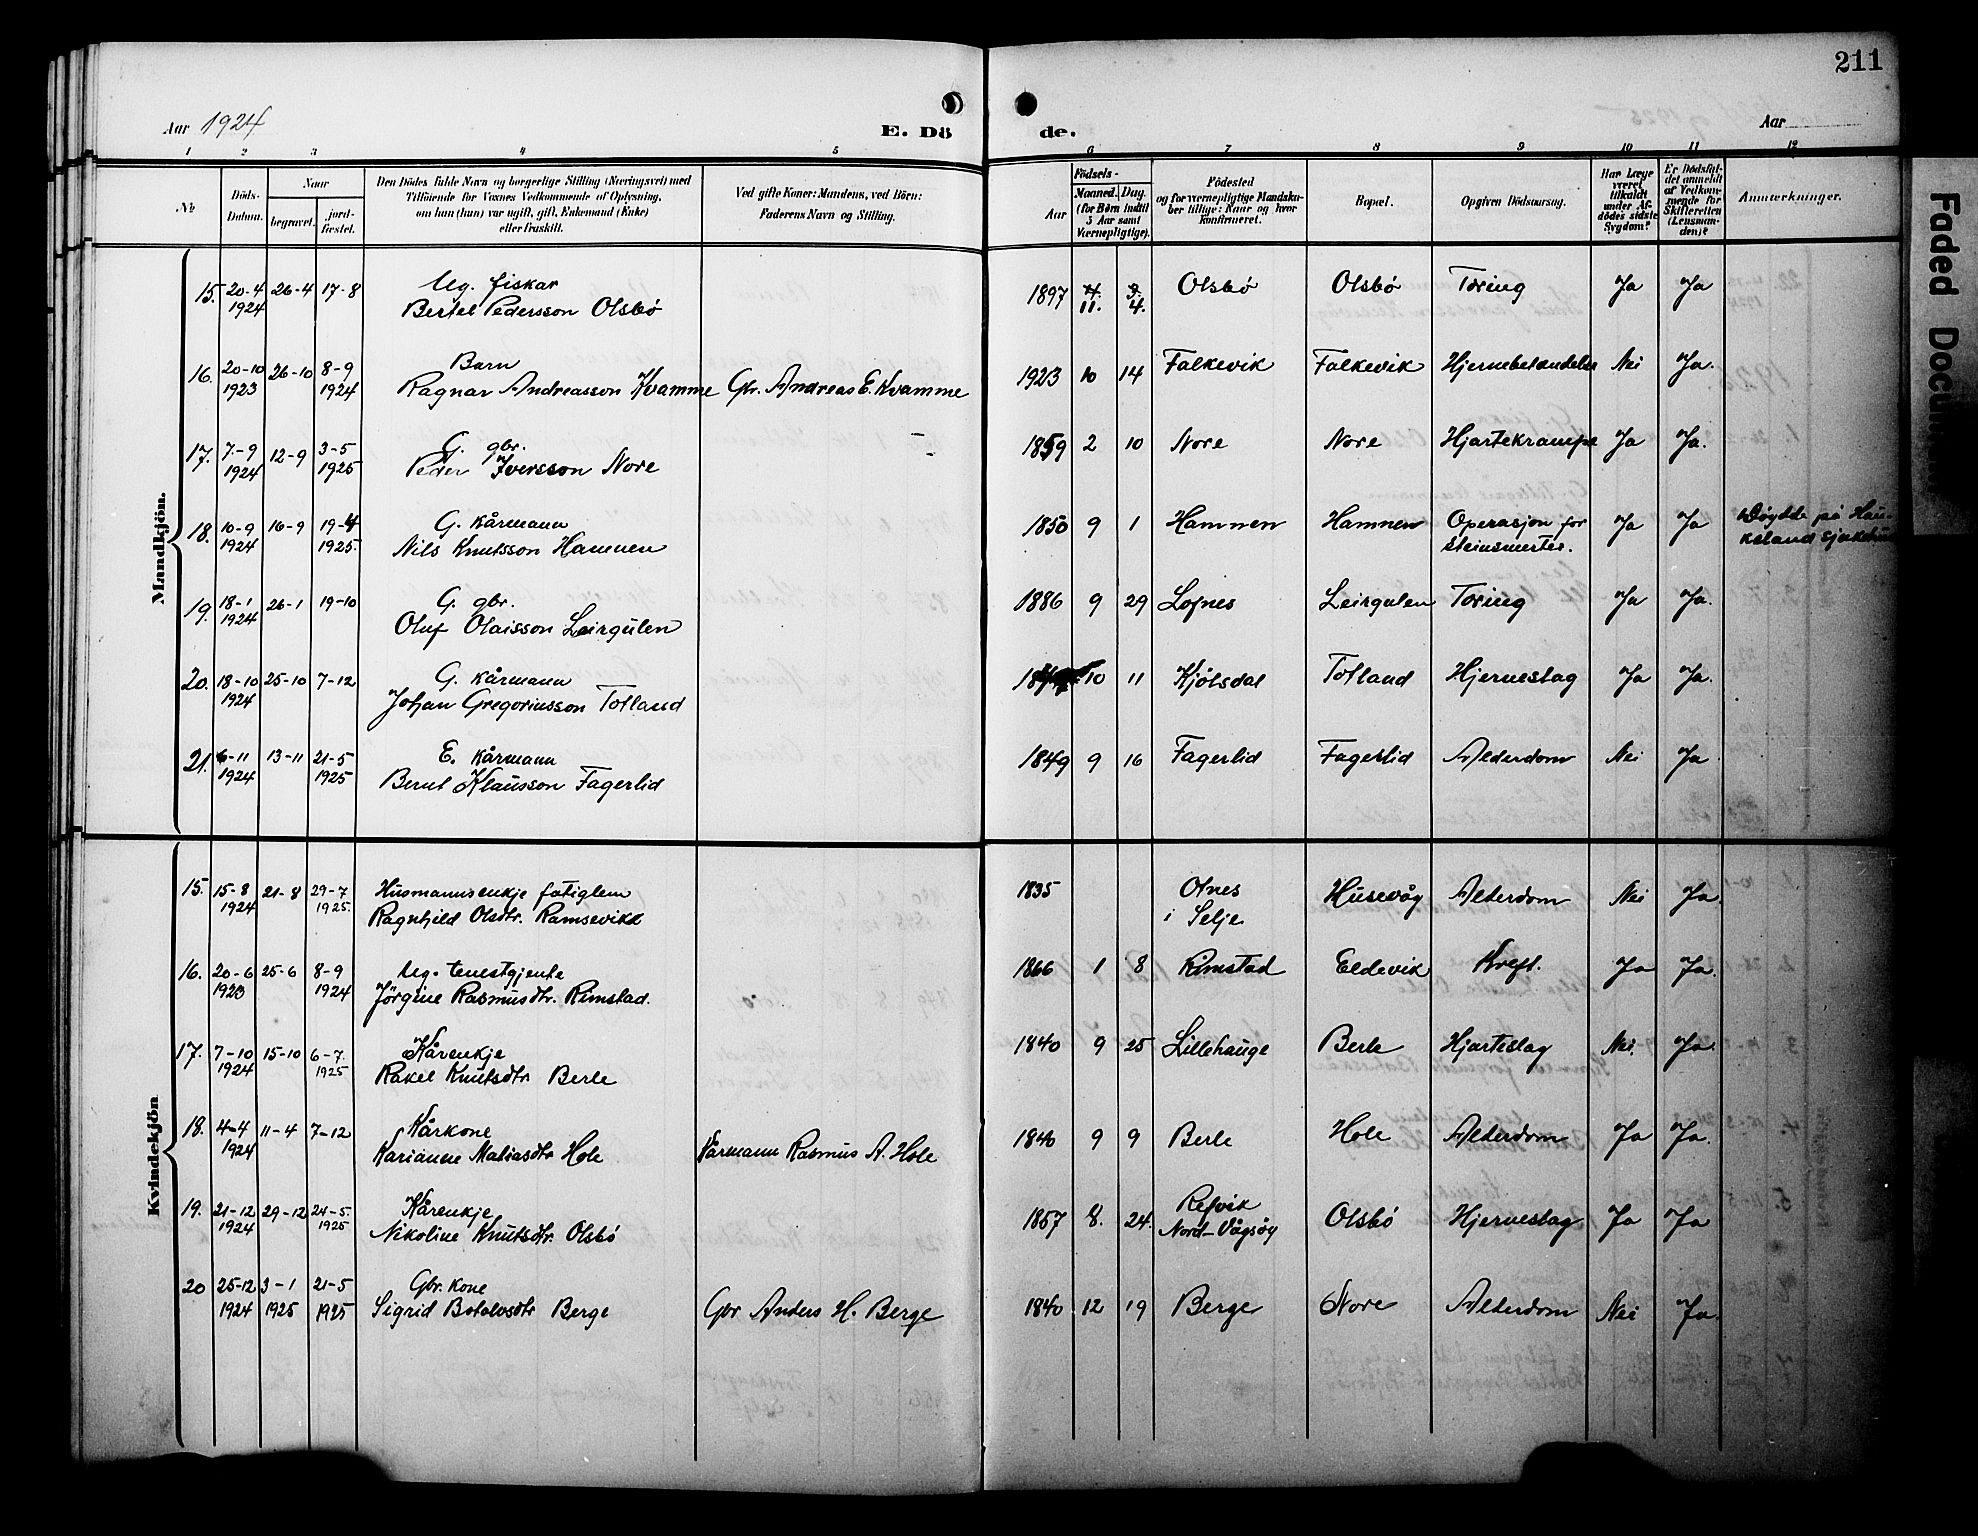 211
Aar 1924
E. Dö
de.
Aar
1 2 3 4 5 6 7 8 9 10 11 12
No
Döds-
Datum.
Naar
begravet.
jord-
fæstet.
Den Dödes fulde Navn og borgerlige Stilling (Næringsvei) med
Tilföiende for Voxnes Vedkommende af Oplysning,
om han (hun) var ugift, gift, Enkemand (Enke)
eller fraskilt.
Ved gifte Koner: Mandens, ved Börn:
Faderens Navn og Stilling.
Födsels-
Aar
Maaned. Dag.
(for Börn indtil
5 Aar samt
Værnepligtige).
Födested
og for værnepligtige Mandsku-
ber tillige: Naar og hvor
konfirmeret.
Bopæl.
Opgiven Dödsaarsag.
Har Læge
været
tilkaldt
under Af-
dödes sidste
Sygdom?
Er Dödsfal-
det anmeldt
af Vedkom-
mende for
Skifteretten
(Lensman-
den)?
Anmærkninger.
Mandkjön.
15. 20-4 1924 26-4 17-8 Ug. fiskar
Bertel Pedersson Olsbø 1897 11. 4. Olsbø Olsbø Tæring Ja Ja
16. 20-10 1923 26-10 8-9 1924 Barn
Ragnar Andreasson Kvamme Gbr. Andreas E. Kvamme 1923 10 14 Falkevik Falkevik Hjernebetændelse Nei Ja.
17. 7-9 1924 12-9 3-5 1925 G. gbr.
Peder Iversson Nore 1859 2 10 Nore Nore Hjartekrampe Ja Ja.
18. 10-9 1924 16-9 19-4 1925. G. kårmann
Nils Knutsson Hamnen 1850 9 1 Hamnen Hamnen Operasjon for
steinsmerter. Ja Ja Døydde på Hau-
keland
19. 18-1 1924 26-1 19-10 G. gbr.
Oluf Olaisson Leirgulen 1886 9 29 Lofnes Leirgulen Tæring Ja Ja.
20. 18-10 1924 25-10 7-12 G. kårmann
Johan Gregoriusson Totland 10 11 Kjølsdal Totland Hjerneslag Ja Ja.
21. 6-11 1924 13-11 21-5 1925 E. kårmann
Bernt Klausson Fagerlid 1849 9 16 Fagerlid Fagerlid Alderdom Nei Ja
Kvindekjön
15. 15-8 1924 21-8 29-7 1925. Husmannsenkje fatiglem
Ragnhild Olsdtr. Ramsevikk 1835 Otnes
i Selje Husevåg Alderdom Nei Ja.
16. 20-6 1923 25-6 8-9 1924 Ug. tenestgjente
Jørgine Rasmusdtr. Rimstad. 1866 1 8 Rimstad Eldevik Kreft. Ja Ja.
17. 7-10 1924 15-10 6-7. 1925 Kårenkje
Rakel Knutsdtr Berle 1840 9 25 Lillehauge Berle Hjarteslag Nei. Ja.
18. 4-4 1924 11-4 7-12 Kårkone
Karianne Matiasdtr Hole Kårmann Rasmus A. Hole 1840 9 9 Berle Hole Alderdom Ja Ja.
19. 21-12 1924 29-12 24-5. 1925 Kårenkje
Nikoline Knutsdtr. Olsbø 1857 8. 24. Refvik
Nord-Vågsøy Olsbø Hjerneslag Ja Ja
20 25-12 1924 3-1 1925 21-5 1925 Gbr. kone
Sigrid Botolvsdtr Berge Gbr Anders H. Berge 1840 12 19 Berge Nore Alderdom Nei Ja.
Faded Docum